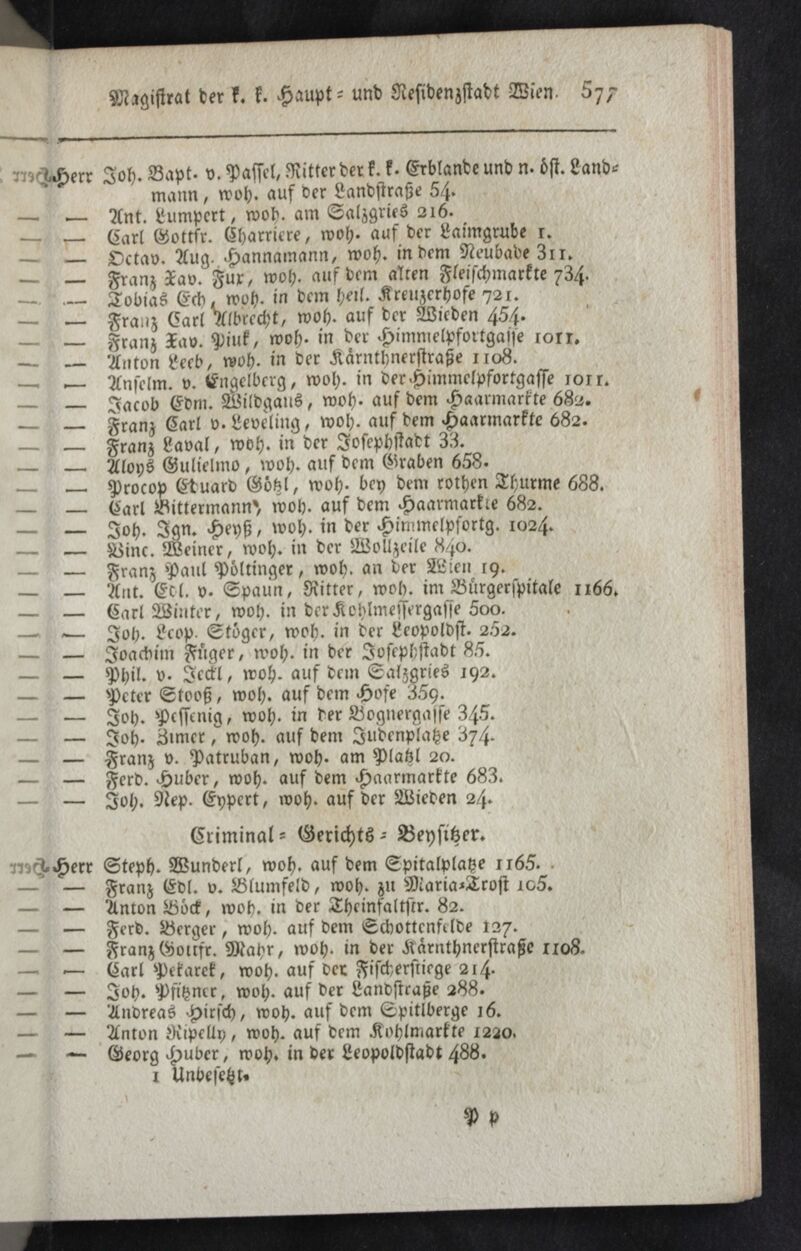 Magistrat der k. k. Haupt- und Residenzstadt Wien. 577
Herr Joh. Bapt. v. Passel, Ritter der k. k. Erblande und n. öst. Land-
mann, woh. auf der Landstraße 54.
— — Ant. Lumpert, woh. am Salzgries 216.
— — Carl Gottfr. Charriere, woh. auf der Laimgrube 1.
— — Octav. Aug. Hannamann, woh. in dem Neubade 311.
— — Franz Xav. Fux, woh. auf dem alten Fleischmarkte 734.
— — Tobias Ech, woh. in dem heil. Kreuzerhofe 721.
— — Franz Carl Albrecht, woh. auf der Wieden 454.
— — Franz Xav. Piuk, woh. in der Himmelpfortgasse 1011.
— — Anton Leeb, woh. in der Kärnthnerstraße 1108.
— — Anselm. v. Engelberg, woh. in der Himmelpfortgasse 1011.
— — Jacob Edm. Wildgans, woh. auf dem Haarmarkte 682.
— — Franz Carl v. Leveling, woh. auf dem Haarmarkte 682.
— — Franz Laval, woh. in der Josephstadt 33.
— — Aloys Gulielmo, woh. auf dem Graben 658.
— — Procop Eduard Götzl, woh. bey dem rothen Thurme 688.
— — Carl Bittermann, woh. auf dem Haarmarkte 682.
— — Joh. Ign. Heyß, woh. in der Himmelpfortg. 1024.
— — Vinc. Weiner, woh. in der Wollzeile 840.
— — Franz Paul Pöltinger, woh. an der Wien 19.
— — Ant. Edl. v. Spaun, Ritter, woh. im Bürgerspitale 1166.
— — Carl Winter, woh. in der Kohlmessergasse 500.
— — Joh. Leop. Stöger, woh. in der Leopoldst. 252.
— — Joachim Füger, woh. in der Josephstadt 85.
— — Phil. v. Jeckl, woh. auf dem Salzgries 192.
— — Peter Stooß, woh. auf dem Hofe 359.
— — Joh. Pessenig, woh. in der Bognergasse 345.
— — Joh. Zimer, woh. auf dem Judenplatze 374.
— — Franz v. Patruban, woh. am Platzl 20.
— — Ferd. Huber, woh. auf dem Haarmarkte 683.
— — Joh. Nep. Eypert, woh. auf der Wieden 24.
Criminal-Gerichts-Beysitzer.
Herr Steph. Wunderl, woh. auf dem Spitalplatze 1165.
— — Franz Edl. v. Blumfeld, woh. zu Maria-Trost 105.
— — Anton Böck, woh. in der Theinfaltstr. 82.
— — Ferd. Berger, woh. auf dem Schottenfelde 127.
— — Franz Gottfr. Mahr, woh. in der Kärnthnerstraße 1108.
— — Carl Pekarek, woh. auf der Fischerstiege 214.
— — Joh. Pfitzner, woh. auf der Landstraße 288.
— — Andreas Hirsch, woh. auf dem Spitlberge 16.
— — Anton Ripelly, woh. auf dem Kohlmarkte 1220.
— — Georg Huber, woh. in der Leopoldstadt 488.
1 Unbesetzt.
P p